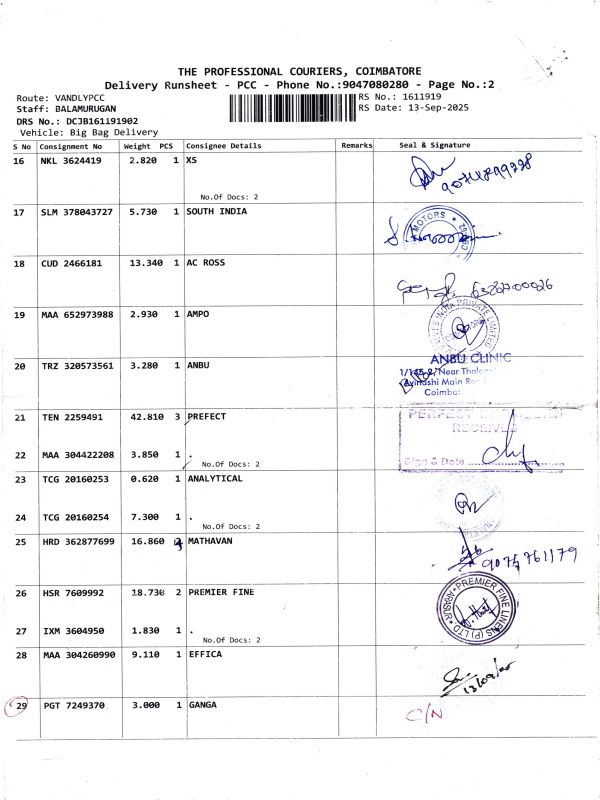 THE PROFESSIONAL COURIERS, COIMBATORE
Delivery Runsheet - PCC - Phone No.:9047080280 - Page No.:2
Route: VANDLYPCC
RS No.: 1611919
Staff: BALAMURUGAN
RS Date: 13-Sep-2025
DRS No.: DCJB161191902
Vehicle: Big Bag Delivery
S No Consignment No Weight PCS Consignee Details Remarks Seal & Signature
16 NKL 3624419 2.820 1 XS
No.Of Docs: 2
17 SLM 378043727 5.730 1 SOUTH INDIA
MOTORS
18 CUD 2466181 13.340 1 AC ROSS
19 MAA 652973988 2.930 1 AMPO
INDIA PRIVATE LIMITED
20 TRZ 320573561 3.280 1 ANBU
ANBU CLINIC
1/145-2, Near
Avinashi Main
Coimbat
21 TEN 2259491 42.810 3 PREFECT
PERFECT
RECEIVED
22 MAA 304422208 3.850 1 .
No.Of Docs: 2
Sign & Date
23 TCG 20160253 0.620 1 ANALYTICAL
24 TCG 20160254 7.300 1 .
No.Of Docs: 2
25 HRD 362877699 16.860 MATHAVAN
9075761179
26 HSR 7609992 18.730 2 PREMIER FINE
PREMIER FINE LINENS (P) LTD ARASUR
27 IXM 3604950 1.830 1 .
No.Of Docs: 2
28 MAA 304260990 9.110 1 EFFICA
29 PGT 7249370 3.000 1 GANGA
C/N